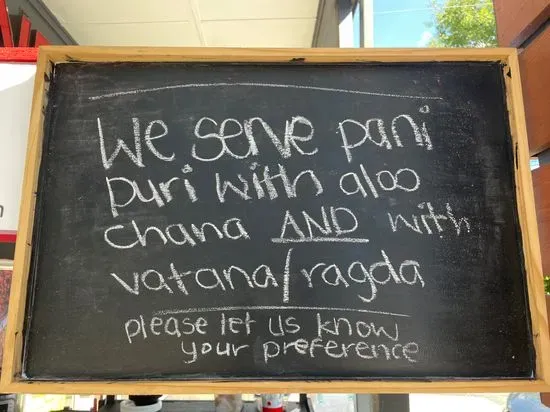 We serve pani
puri with aloo
chana AND with
vatana/ragda
please let us know
your preference